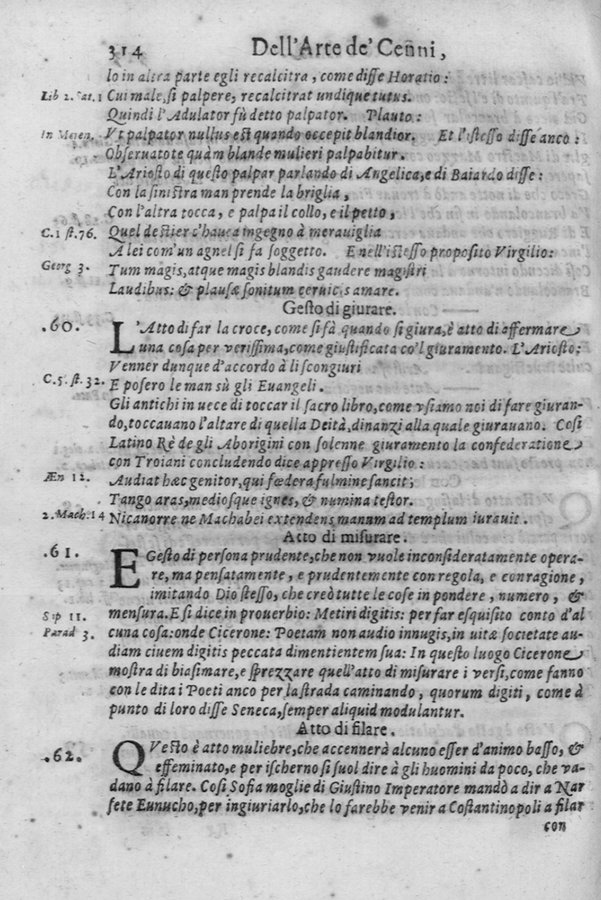 314 Dell'Arte de' Cenni,
lo in altra parte egli recalcitra, come disse Horatio:
Lib 2. Sat. 1 Cui male, si palpere, recalcitrat undique tutus.
Quindi l'Adulator fù detto palpator. Plauto:
In Menen. Vt palpator nullus est quando occepit blandior. Et l'istesso disse anco:
Obseruatote quàm blande mulieri palpabitur.
L'Ariosto di questo palpar parlando di Angelica, e di Baiardo disse:
Con la sinistra man prende la briglia,
Con l'altra tocca, e palpa il collo, e il petto,
C. 1 st. 76. Quel destier c'hauea ingegno à merauiglia
A lei com'un agnel si fa soggetto. E nell'istesso proposito Virgilio:
Georg 3. Tum magis, atque magis blandis gaudere magistri
Laudibus: & plausæ sonitum ceruicis amare.
Gesto di giurare.
.60. L'Atto di far la croce, come si fà quando si giura, è atto di affermare
una cosa per verissima, come giustificata co'l giuramento. L'Ariosto:
Venner dunque d'accordo à li scongiuri
C. 5. st. 32. E posero le man sù gli Euangeli.
Gli antichi in uece di toccar il sacro libro, come vsiamo noi di fare giuran-
do, toccauano l'altare di quella Deità, dinanzi alla quale giurauano. Così
Latino Rè de gli Aborigini con solenne giuramento la confederatione
con Troiani concludendo dice appresso Virgilio:
Æn 12. Audiat hæc genitor, qui fœdera fulmine sancit;
Tango aras, mediosque ignes, & numina testor.
2. Mach. 14 Nicanorre ne Machabei extendens manum ad templum iurauit.
Atto di misurare.
.61. E Gesto di persona prudente, che non vuole inconsideratamente opera-
re, ma pensatamente, e prudentemente con regola, e con ragione,
imitando Dio stesso, che creò tutte le cose in pondere, numero, &
Sip 11. mensura. E si dice in prouerbio: Metiri digitis: per far esquisito conto d'al
Parad 3. cuna cosa: onde Cicerone: Poetam non audio in nugis, in uitæ societate au-
diam ciuem digitis peccata dimentientem sua: In questo luogo Cicerone
mostra di biasimare, e sprezzare quell'atto di misurare i versi, come fanno
con le dita i Poeti anco per la strada caminando, quorum digiti, come à
punto di loro disse Seneca, semper aliquid modulantur.
Atto di filare.
.62. QVesto è atto muliebre, che accennerà alcuno esser d'animo basso, &
effeminato, e per ischerno si suol dire à gli huomini da poco, che va-
dano à filare. Così Sofia moglie di Giustino Imperatore mandò a dir a Nar
sete Eunucho, per ingiuriarlo, che lo farebbe venir a Costantinopoli a filar
con